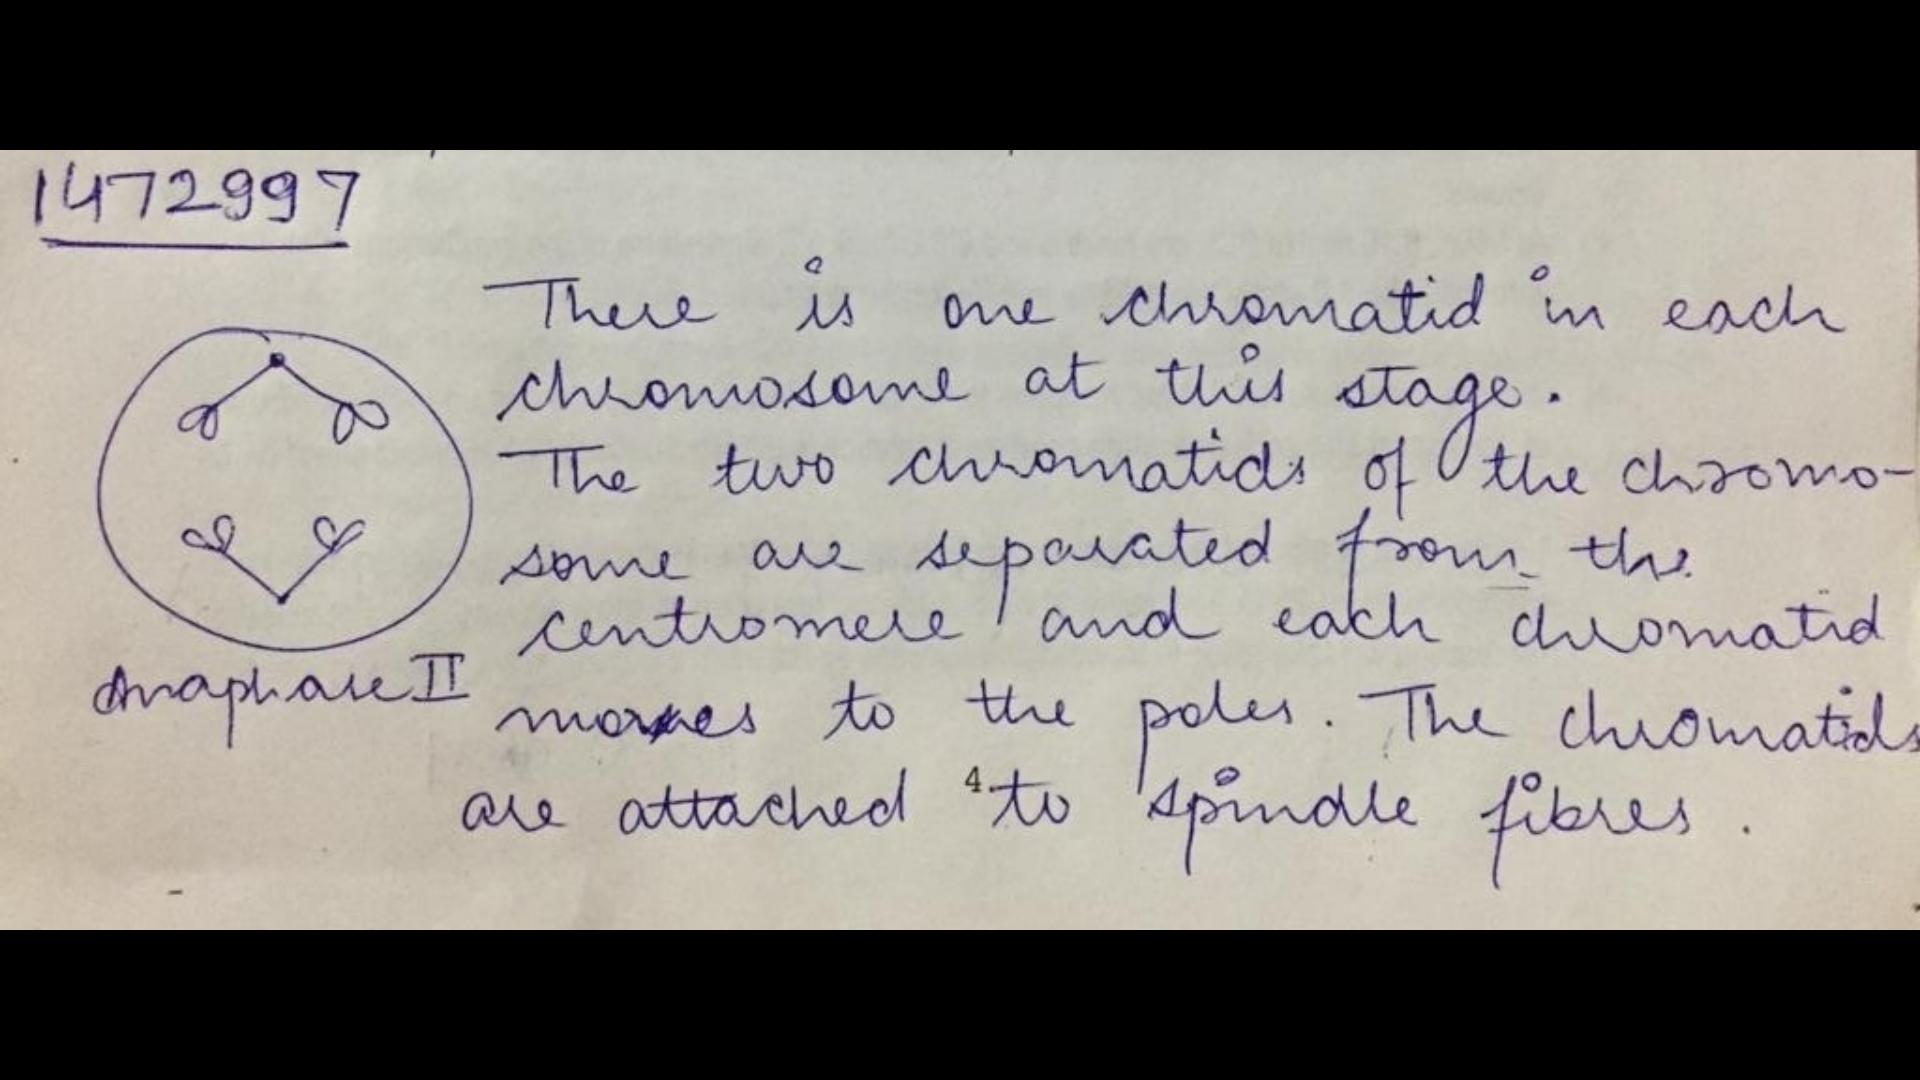 1472997
There is one chromatid in each
chromosome at this stage.
The two chromatids of the chromo-
some are separated from the
centromere and each chromatid
Anaphase II
moves to the poles. The chromatids
are attached 4 to spindle fibres.